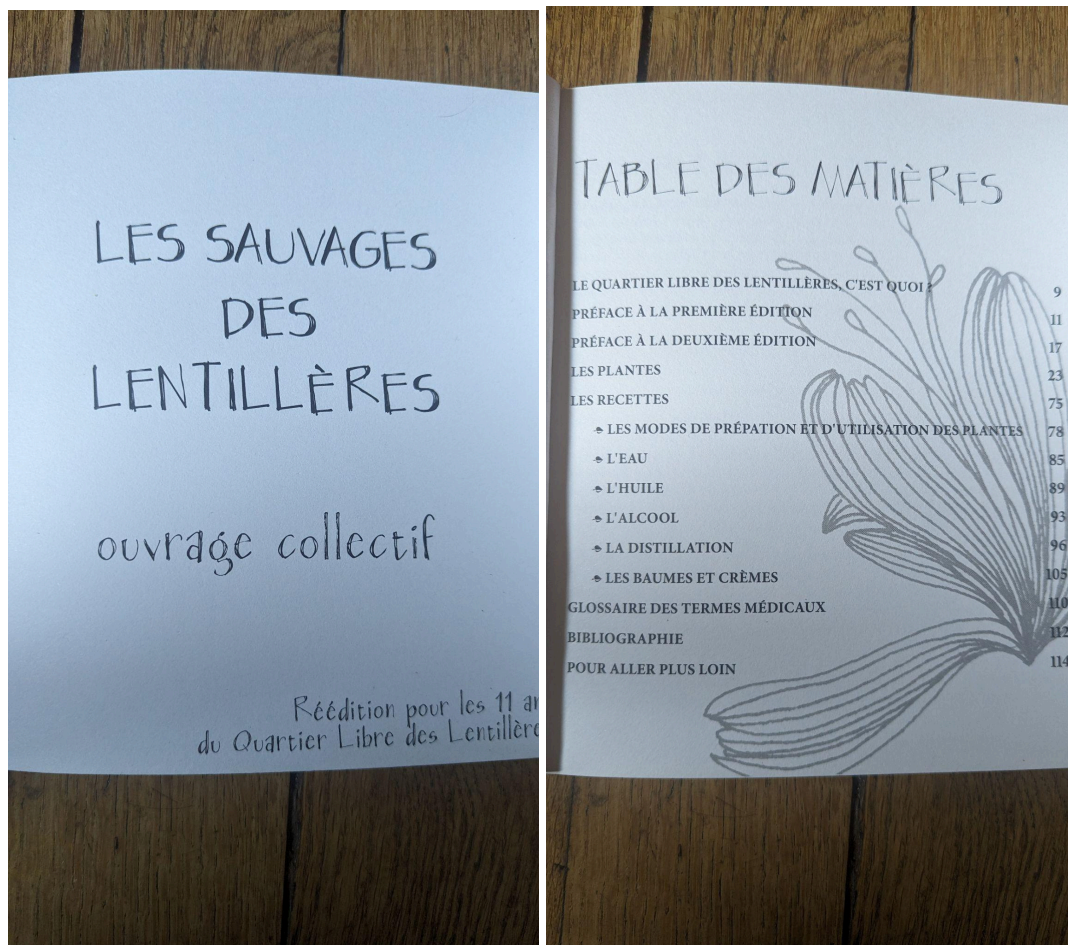 LES SAUVAGES
DES
LENTILLÈRES
ouvrage collectif
Réédition pour les 11 an
du Quartier Libre des Lentillère
TABLE DES MATIÈRES
LE QUARTIER LIBRE DES LENTILLÈRES, C'EST QUOI ? 9
PRÉFACE À LA PREMIÈRE ÉDITION 11
PRÉFACE À LA DEUXIÈME ÉDITION 17
LES PLANTES 23
LES RECETTES 75
LES MODES DE PRÉPATION ET D'UTILISATION DES PLANTES 78
L'EAU 85
L'HUILE 89
L'ALCOOL 93
LA DISTILLATION 96
LES BAUMES ET CRÈMES 105
GLOSSAIRE DES TERMES MÉDICAUX 110
BIBLIOGRAPHIE 112
POUR ALLER PLUS LOIN 114